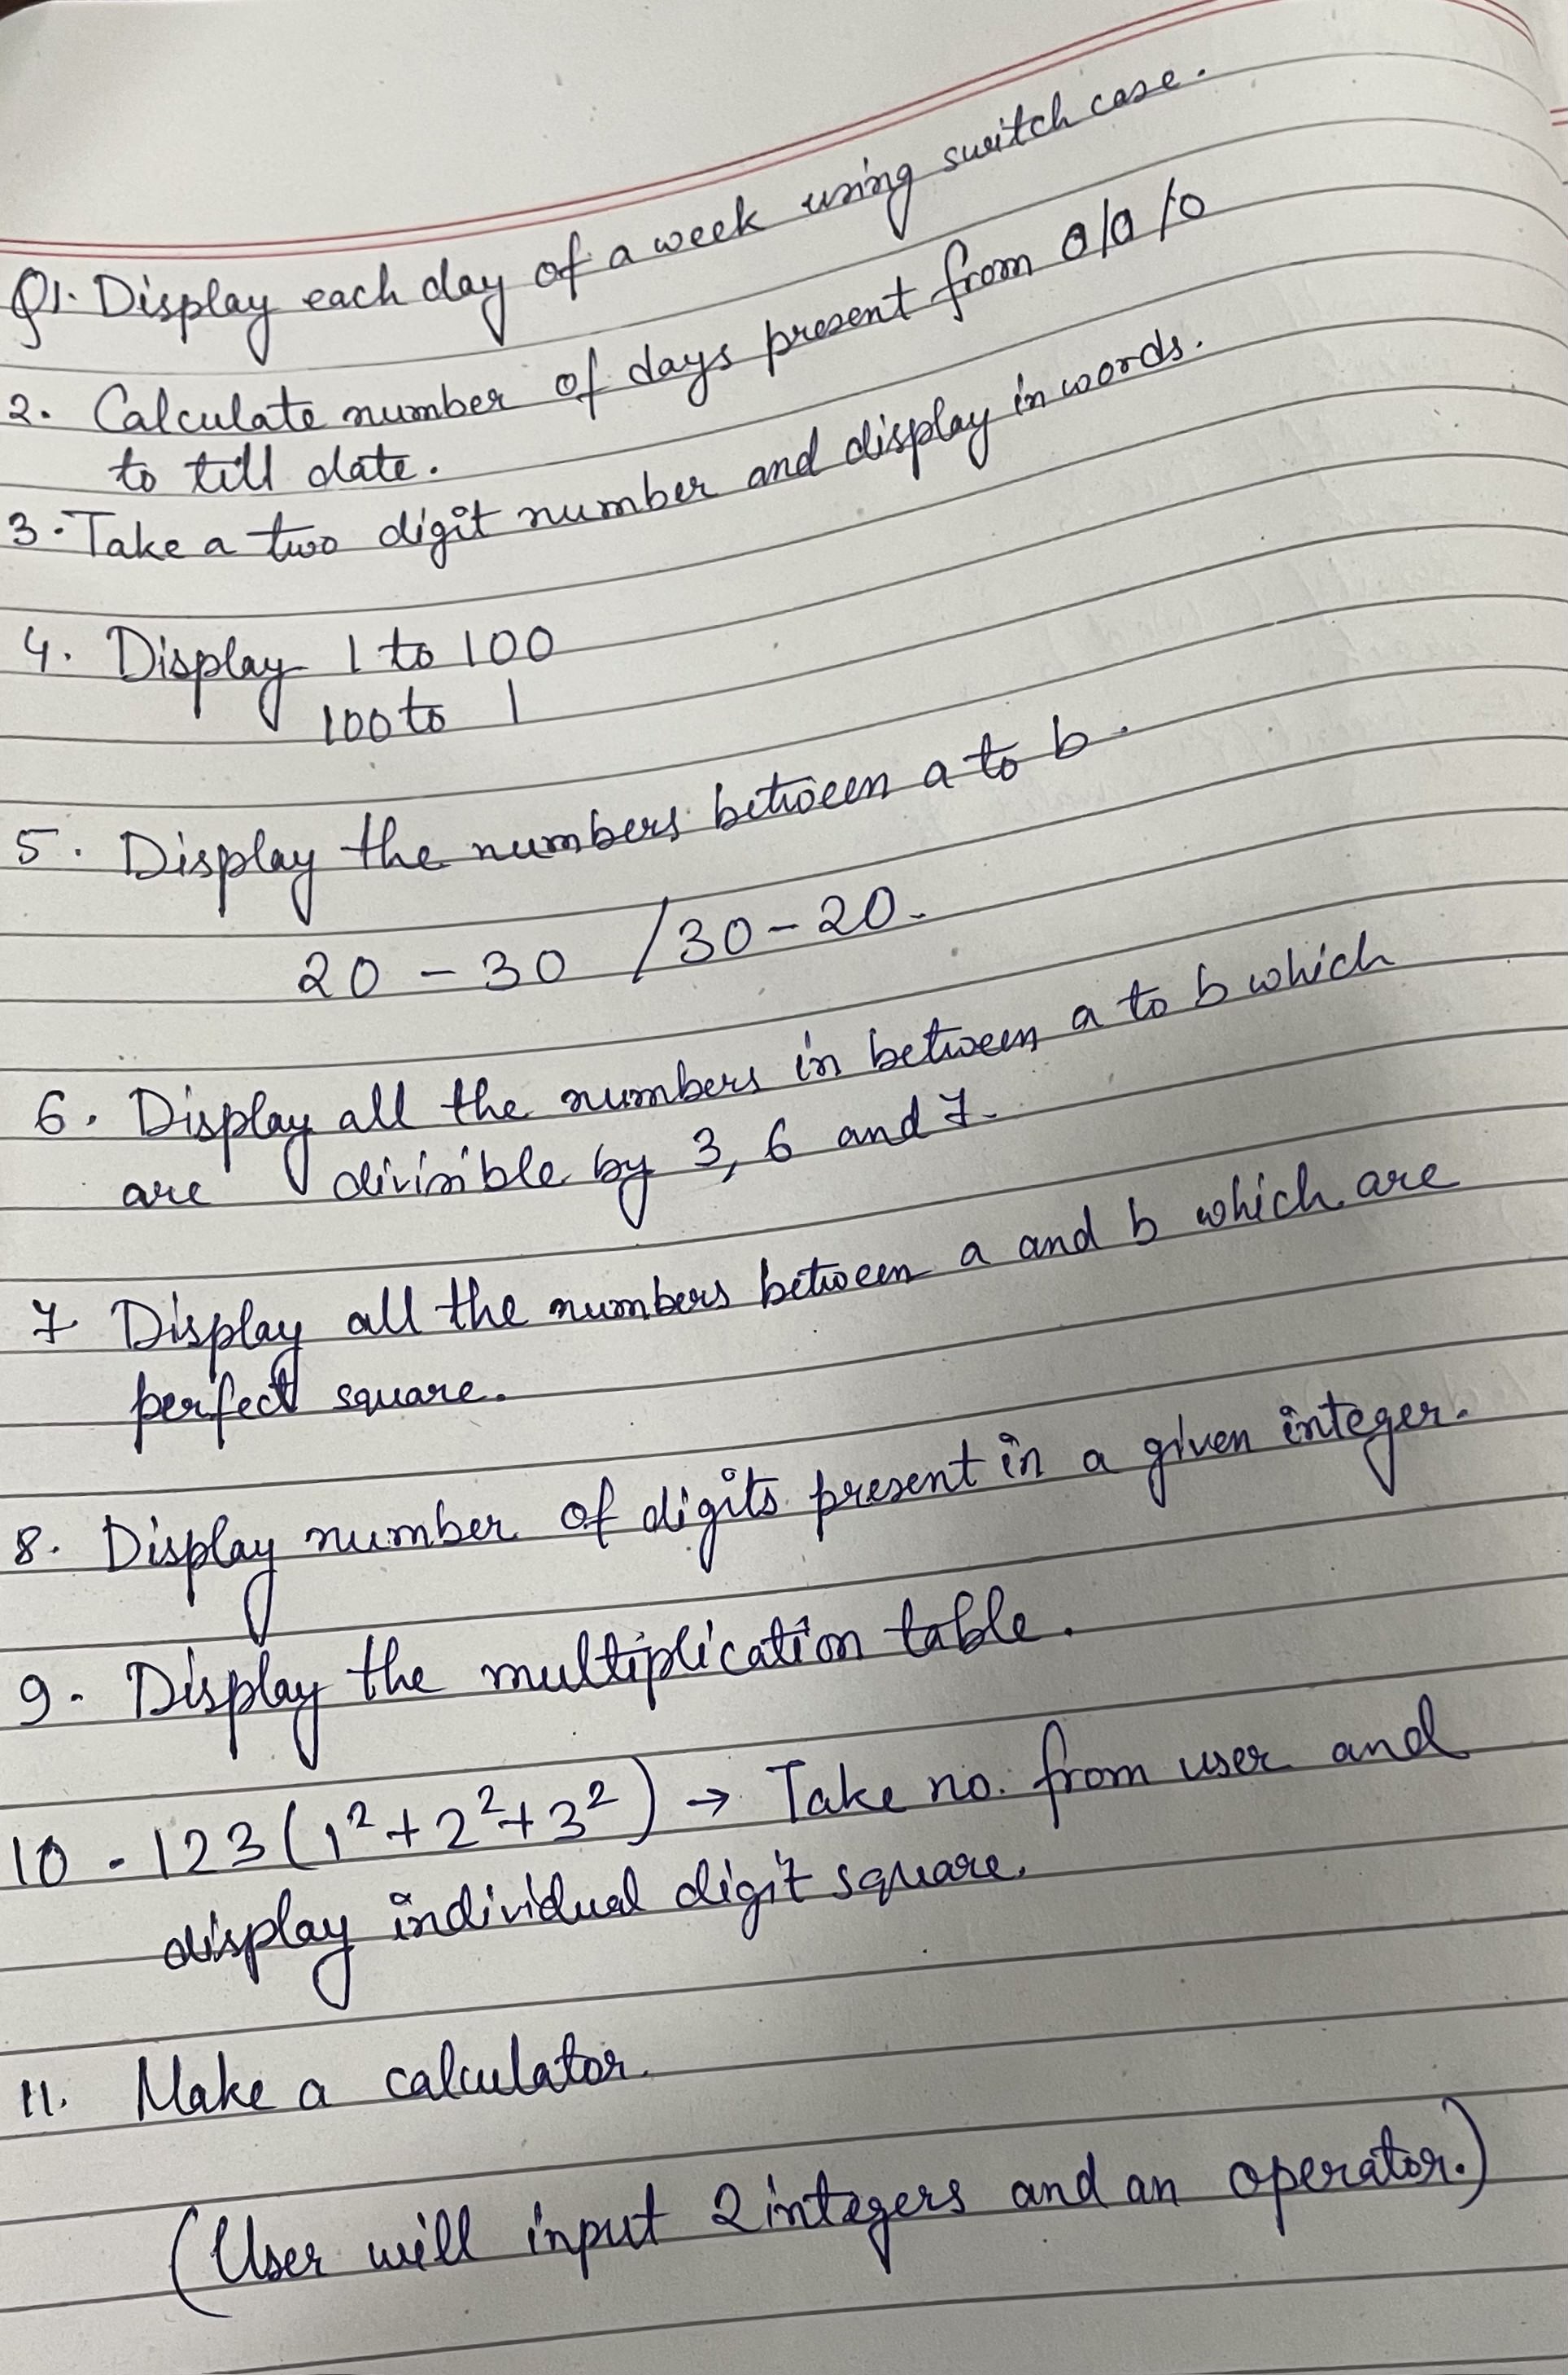 Q1. Display each day of a week using switch case.
2. Calculate number of days present from 0/0/0
to till date.
3. Take a two digit number and display in words.
4. Display 1 to 100
100 to 1
5. Display the numbers between a to b.
20 - 30 / 30 - 20.
6. Display all the numbers in between a to b which
are divisible by 3, 6 and 7.
7 Display all the numbers between a and b which are
perfect square.
8. Display number of digits present in a given integer.
9. Display the multiplication table.
10. 123 (1² + 2² + 3²) → Take no. from user and
display individual digit square.
11. Make a calculator.
(User will input 2 integers and an operator.)